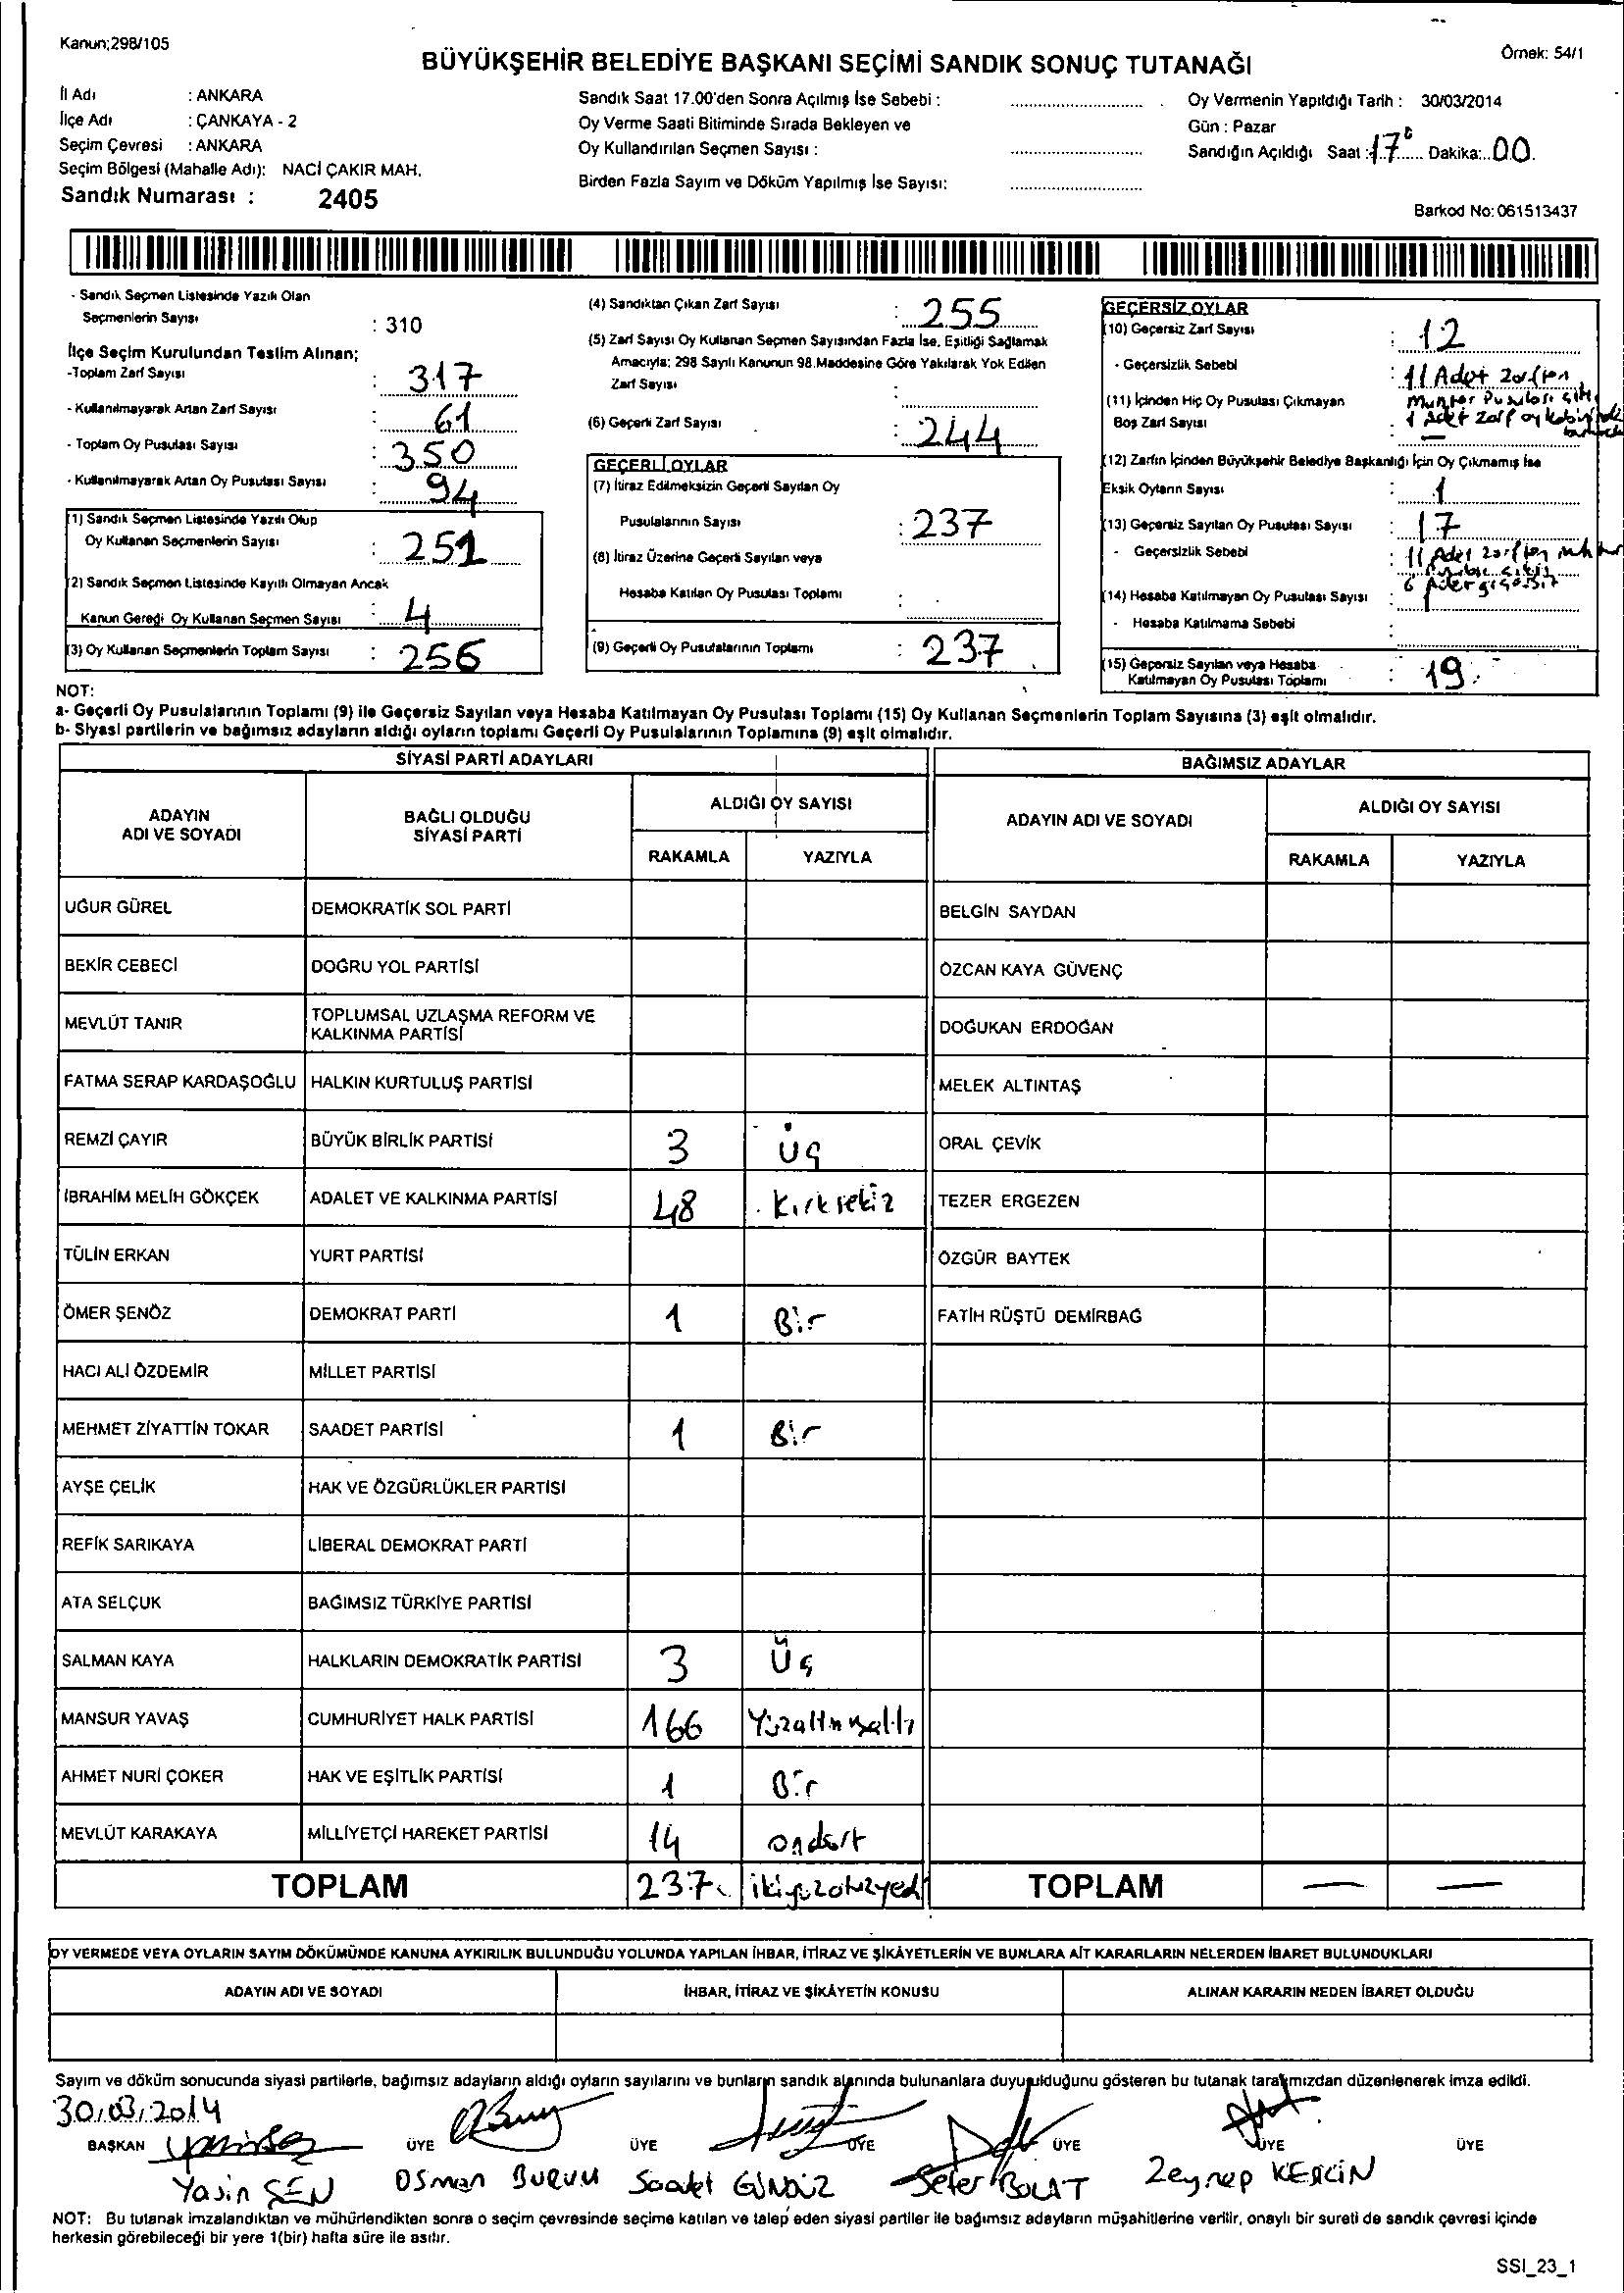 Kanun;298/105
Örnek: 54/1
BÜYÜKŞEHİR BELEDİYE BAŞKANI SEÇİMİ SANDIK SONUÇ TUTANAĞI
İl Adı : ANKARA
İlçe Adı : ÇANKAYA - 2
Seçim Çevresi : ANKARA
Seçim Bölgesi (Mahalle Adı): NACİ ÇAKIR MAH.
Sandık Numarası : 2405
Sandık Saat 17.00'den Sonra Açılmış İse Sebebi :
Oy Verme Saati Bitiminde Sırada Bekleyen ve
Oy Kullandırılan Seçmen Sayısı :
Birden Fazla Sayım ve Döküm Yapılmış İse Sayısı:
Oy Vermenin Yapıldığı Tarih : 30/03/2014
Gün : Pazar
Sandığın Açıldığı Saat : 17 Dakika: 00
Barkod No: 061513437
- Sandık Seçmen Listesinde Yazılı Olan
Seçmenlerin Sayısı : 310
İlçe Seçim Kurulundan Teslim Alınan;
-Toplam Zarf Sayısı : 317
- Kullanılmayarak Artan Zarf Sayısı : 61
- Toplam Oy Pusulası Sayısı : 350
- Kullanılmayarak Artan Oy Pusulası Sayısı : 94
(1) Sandık Seçmen Listesinde Yazılı Olup
Oy Kullanan Seçmenlerin Sayısı : 252
(2) Sandık Seçmen Listesinde Kayıtlı Olmayan Ancak
Kanun Gereği Oy Kullanan Seçmen Sayısı : 4
(3) Oy Kullanan Seçmenlerin Toplam Sayısı : 256
(4) Sandıktan Çıkan Zarf Sayısı : 255
(5) Zarf Sayısı Oy Kullanan Seçmen Sayısından Fazla İse, Eşitliği Sağlamak
Amacıyla; 298 Sayılı Kanunun 98.Maddesine Göre Yakılarak Yok Edilen
Zarf Sayısı :
(6) Geçerli Zarf Sayısı : 244
GEÇERLİ OYLAR
(7) İtiraz Edilmeksizin Geçerli Sayılan Oy
Pusulalarının Sayısı : 237
(8) İtiraz Üzerine Geçerli Sayılan veya
Hesaba Katılan Oy Pusulası Toplamı :
(9) Geçerli Oy Pusulalarının Toplamı : 237
GEÇERSİZ OYLAR
(10) Geçersiz Zarf Sayısı : 12
- Geçersizlik Sebebi : 11 Adet zarften
muhtar Pusulası çıktı
1 adet zarf oy kabininde
(11) İçinden Hiç Oy Pusulası Çıkmayan
Boş Zarf Sayısı : —
(12) Zarfın İçinden Büyükşehir Belediye Başkanlığı İçin Oy Çıkmamış İse
Eksik Oyların Sayısı : 1
(13) Geçersiz Sayılan Oy Pusulası Sayısı : 17
- Geçersizlik Sebebi : 11 Adet zarften muhtar
pusulası çıktı
6 Adet geçersiz
(14) Hesaba Katılmayan Oy Pusulası Sayısı : 1
- Hesaba Katılmama Sebebi :
(15) Geçersiz Sayılan veya Hesaba
Katılmayan Oy Pusulası Toplamı : 19
NOT:
a- Geçerli Oy Pusulalarının Toplamı (9) ile Geçersiz Sayılan veya Hesaba Katılmayan Oy Pusulası Toplamı (15) Oy Kullanan Seçmenlerin Toplam Sayısına (3) eşit olmalıdır.
b- Siyasi partilerin ve bağımsız adayların aldığı oyların toplamı Geçerli Oy Pusulalarının Toplamına (9) eşit olmalıdır.
SİYASİ PARTİ ADAYLARI
ADAYIN ADI VE SOYADI
BAĞLI OLDUĞU SİYASİ PARTİ
ALDIĞI OY SAYISI
RAKAMLA YAZIYLA
BAĞIMSIZ ADAYLAR
ADAYIN ADI VE SOYADI
ALDIĞI OY SAYISI
RAKAMLA YAZIYLA
UĞUR GÜREL DEMOKRATİK SOL PARTİ BELGİN SAYDAN
BEKİR CEBECİ DOĞRU YOL PARTİSİ ÖZCAN KAYA GÜVENÇ
MEVLÜT TANIR TOPLUMSAL UZLAŞMA REFORM VE KALKINMA PARTİSİ DOĞUKAN ERDOĞAN
FATMA SERAP KARDAŞOĞLU HALKIN KURTULUŞ PARTİSİ MELEK ALTINTAŞ
REMZİ ÇAYIR BÜYÜK BİRLİK PARTİSİ 3 Üç ORAL ÇEVİK
İBRAHİM MELİH GÖKÇEK ADALET VE KALKINMA PARTİSİ 48 Kırksekiz TEZER ERGEZEN
TÜLİN ERKAN YURT PARTİSİ ÖZGÜR BAYTEK
ÖMER ŞENÖZ DEMOKRAT PARTİ 1 Bir FATİH RÜŞTÜ DEMİRBAĞ
HACI ALİ ÖZDEMİR MİLLET PARTİSİ
MEHMET ZİYATTİN TOKAR SAADET PARTİSİ 1 Bir
AYŞE ÇELİK HAK VE ÖZGÜRLÜKLER PARTİSİ
REFİK SARIKAYA LİBERAL DEMOKRAT PARTİ
ATA SELÇUK BAĞIMSIZ TÜRKİYE PARTİSİ
SALMAN KAYA HALKLARIN DEMOKRATİK PARTİSİ 3 Üç
MANSUR YAVAŞ CUMHURİYET HALK PARTİSİ 166 Yüzaltmışaltı
AHMET NURİ ÇOKER HAK VE EŞİTLİK PARTİSİ 1 Bir
MEVLÜT KARAKAYA MİLLİYETÇİ HAREKET PARTİSİ 14 ondört
TOPLAM 237 ikiyüzotuzyedi TOPLAM — —
OY VERMEDE VEYA OYLARIN SAYIM DÖKÜMÜNDE KANUNA AYKIRILIK BULUNDUĞU YOLUNDA YAPILAN İHBAR, İTİRAZ VE ŞİKÂYETLERİN VE BUNLARA AİT KARARLARIN NELERDEN İBARET BULUNDUKLARI
ADAYIN ADI VE SOYADI İHBAR, İTİRAZ VE ŞİKÂYETİN KONUSU ALINAN KARARIN NEDEN İBARET OLDUĞU
Sayım ve döküm sonucunda siyasi partilerle, bağımsız adayların aldığı oyların sayılarını ve bunların sandık alanında bulunanlara duyurulduğunu gösteren bu tutanak tarafımızdan düzenlenerek imza edildi.
30/03/2014
BAŞKAN ÜYE ÜYE ÜYE ÜYE ÜYE ÜYE
Yasin ŞEN Osman BURUM Saadet GÜNDÜZ Sefer BOLAT Zeynep KESKİN
NOT: Bu tutanak imzalandıktan ve mühürlendikten sonra o seçim çevresinde seçime katılan ve talep eden siyasi partiler ile bağımsız adayların müşahitlerine verilir, onaylı bir sureti de sandık çevresi içinde
herkesin görebileceği bir yere 1(bir) hafta süre ile asılır.
SSI_23_1